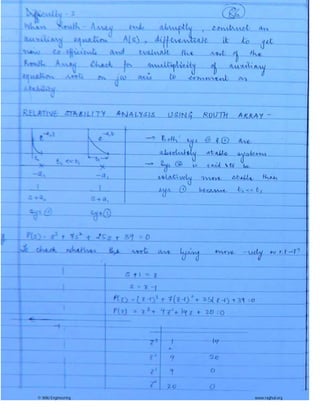 Difficulty - 2
When Routh-Array ends abruptly, construct an
auxiliary equation A(s), differentiate it to get
new co efficients and evaluate the rest of the
Routh Array. Check for multiplicity of auxiliary
equation roots on jω axis to comment on
stability.
RELATIVE STABILITY ANALYSIS USING ROUTH ARRAY -
→ Both sys ① & ② are
absolutely stable systems
→ Sys is said to be
relatively more stable than
sys because
P(s) = s³ + 7s² + 25s + 39 = 0
To check whether the roots are lying more -vely w.r.t -1
s + 1 = z
s = z - 1
P(z) = (z-1)³ + 7(z-1)² + 25(z-1) + 39 = 0
P(z) = z³ + 4z² + 14z + 20 = 0
-1
z³ 1 14
z² 4 20
z¹ 9 0
z⁰ 20 0
© Wiki Engineering
www.raghul.org